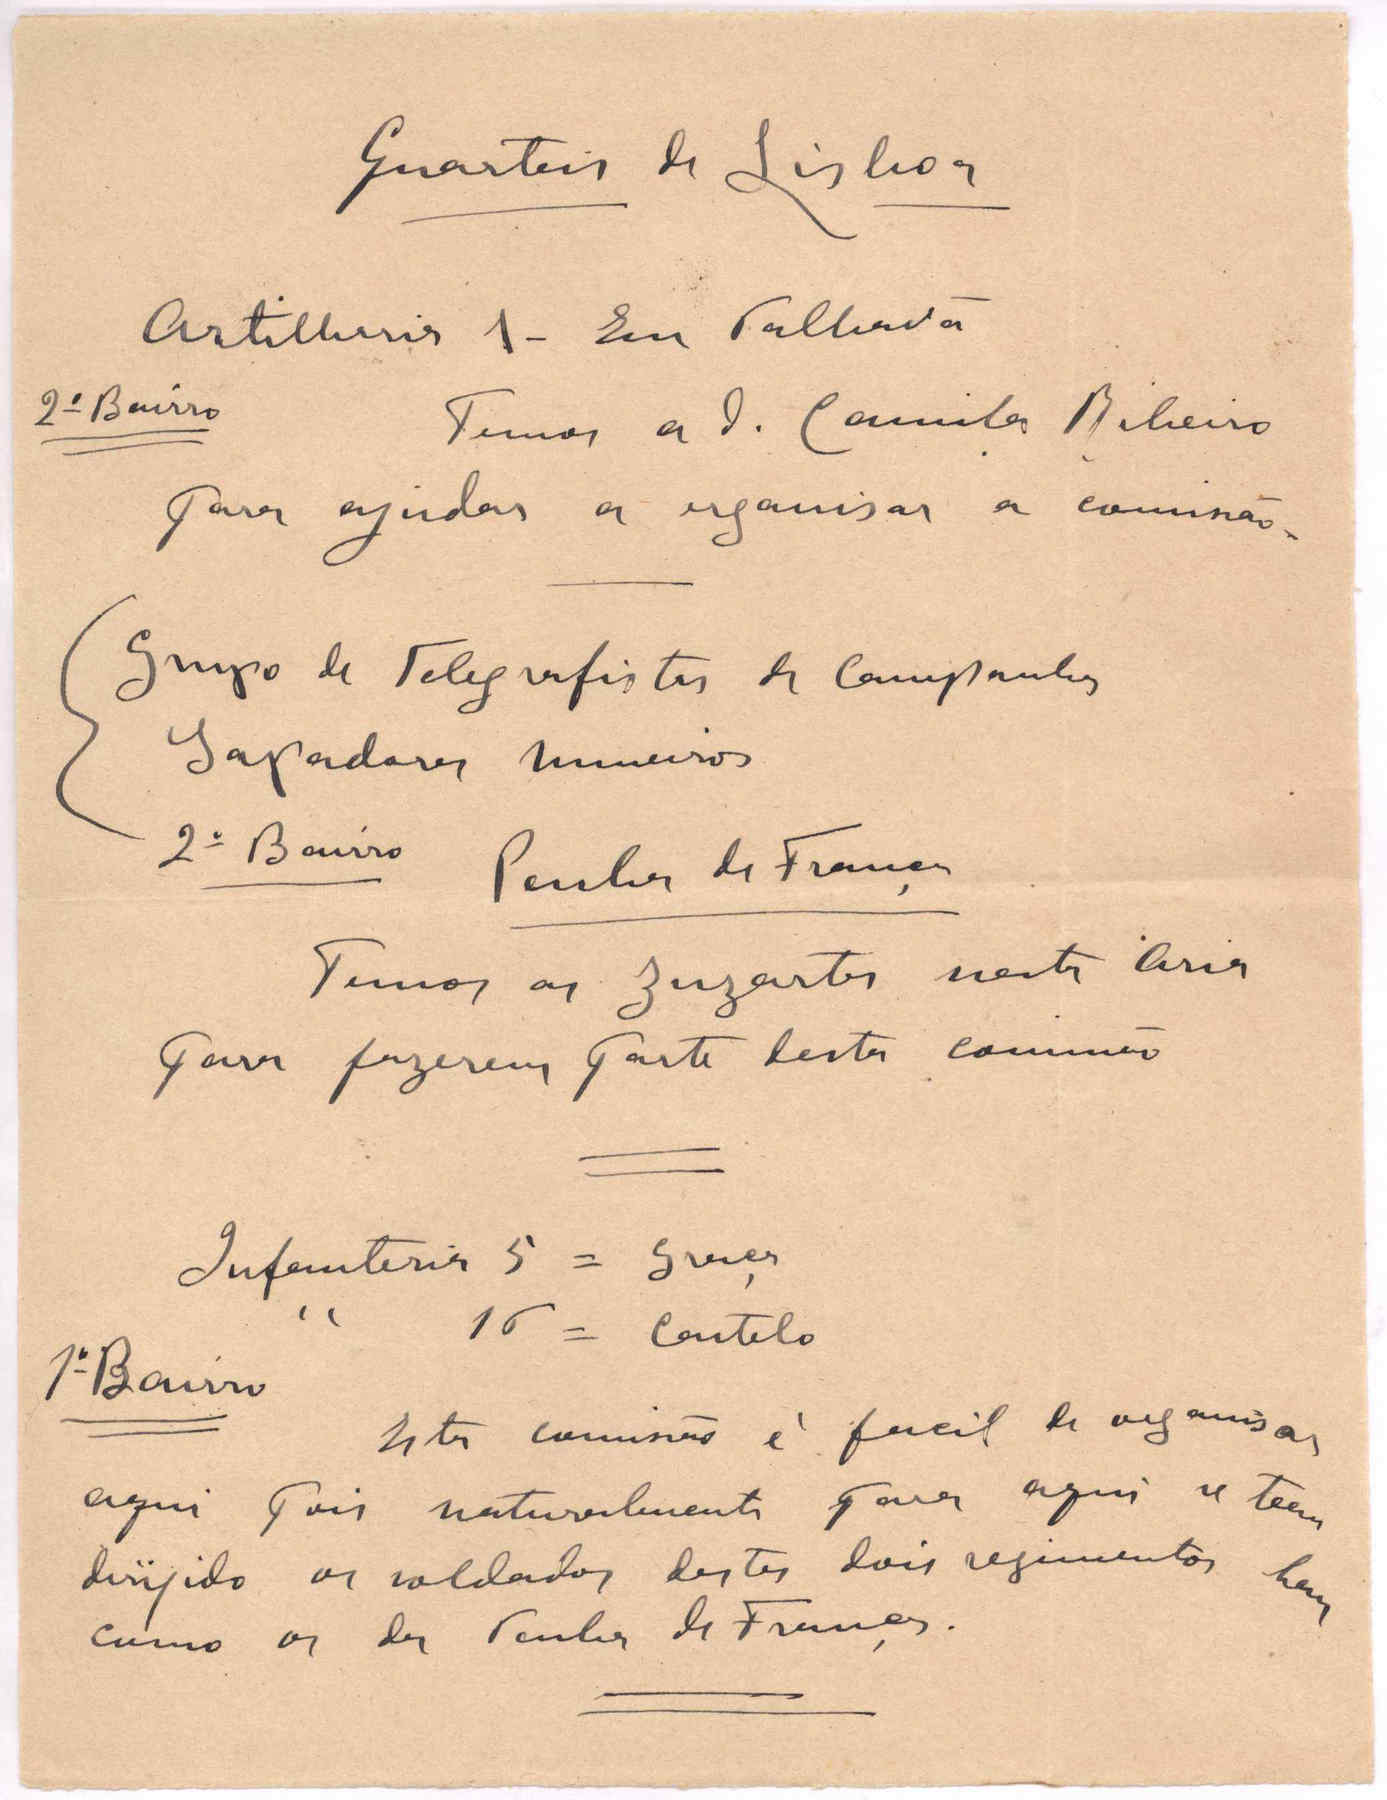 Quarteis de Lisboa
Artilheria 1 - Em Palhavã
2º Bairro
Temos a D. Camila Ribeiro
para ajudar a organisar a comissão.
Grupo de Telegrafistas de Campanha
Sapadores mineiros
2º Bairro Penha de França
Temos as Zuzartes nesta área
para fazerem parte desta comissão
Infanteria 5 = Graça
" 16 = Castelo
1º Bairro
Esta comissão é facil de organisar
aqui pois naturalmente para aqui se teem
dirijido os soldados destes dois regimentos bem
como os da Penha de França.